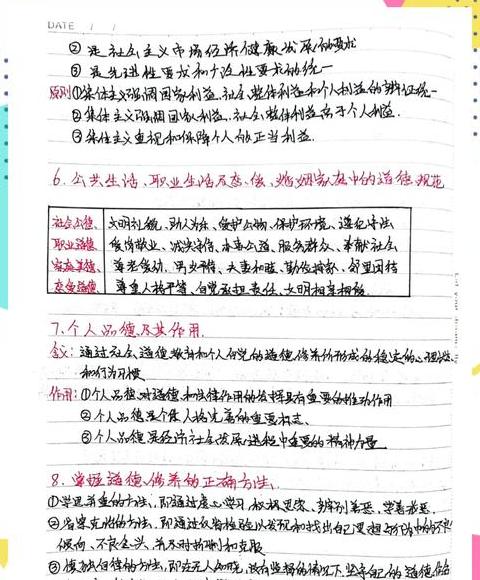 DATE / /
② 是社会主义市场经济健康发展的要求
③ 是先进性要求和广泛性要求的统一
原则①集体主义强调国家利益、社会整体利益和个人利益的辩证统一
②集体主义强调国家利益、社会整体利益高于个人利益.
③集体主义重视和保障个人的正当利益.
6.公共生活、职业生活及恋爱、婚姻家庭中的道德规范
社会公德、文明礼貌、助人为乐、爱护公物、保护环境、遵纪守法
职业道德、爱岗敬业、诚实守信、办事公道、服务群众、奉献社会
家庭美德、尊老爱幼、男女平等、夫妻和睦、勤俭持家、邻里团结
恋爱道德、尊重人格平等、自觉承担责任、文明相亲相爱.
7.个人品德及其作用.
含义：通过社会道德教育和个人自觉的道德修养所形成的稳定的心理
和行为习惯
作用：①个人品德对道德和法律作用的发挥具有重要的推动作用
②个人品德是个体人格完善的重要标志.
③个人品德是经济社会发展进程中重要的精神力量
8.掌握道德修养的正确方法、
①学思并重的方法、即通过虚心学习、积极思索、辨别善恶、学善戒恶.
②省察克治的方法、即通过反省检验以发现和找出自己思想与行为中的不
倾向、不良念头、并及时抑制和克服
③慎独自律的方法、即在无人知晓、没有监督的情况下、坚守自己的道德信